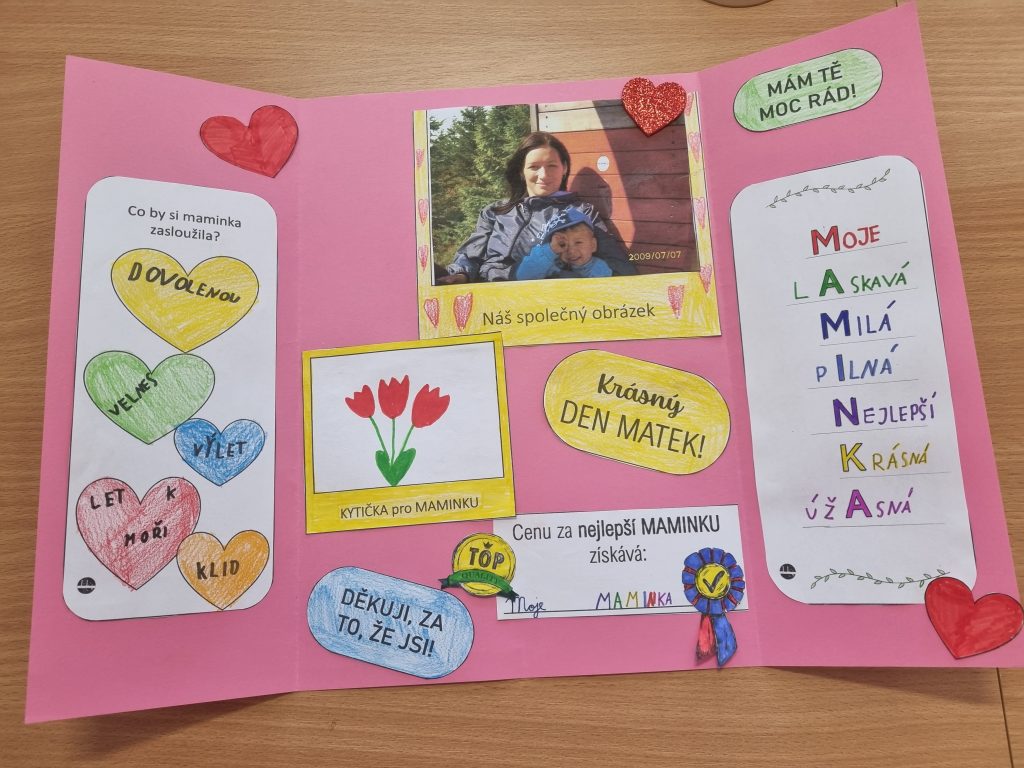 Co by si maminka
zasloužila?
DOVOLENOU
VELNES
VÝLET
LET K
MOŘI
KLID
2009/07/07
Náš společný obrázek
KYTIČKA pro MAMINKU
Krásný
DEN MATEK!
Cenu za nejlepší MAMINKU
získává:
Moje MAMINKA
TOP
QUALITY
DĚKUJI, ZA
TO, ŽE JSI!
MÁM TĚ
MOC RÁD!
MOJE
LASKAVÁ
MILÁ
PILNÁ
NEJLEPŠÍ
KRÁSNÁ
ÚŽASNÁ